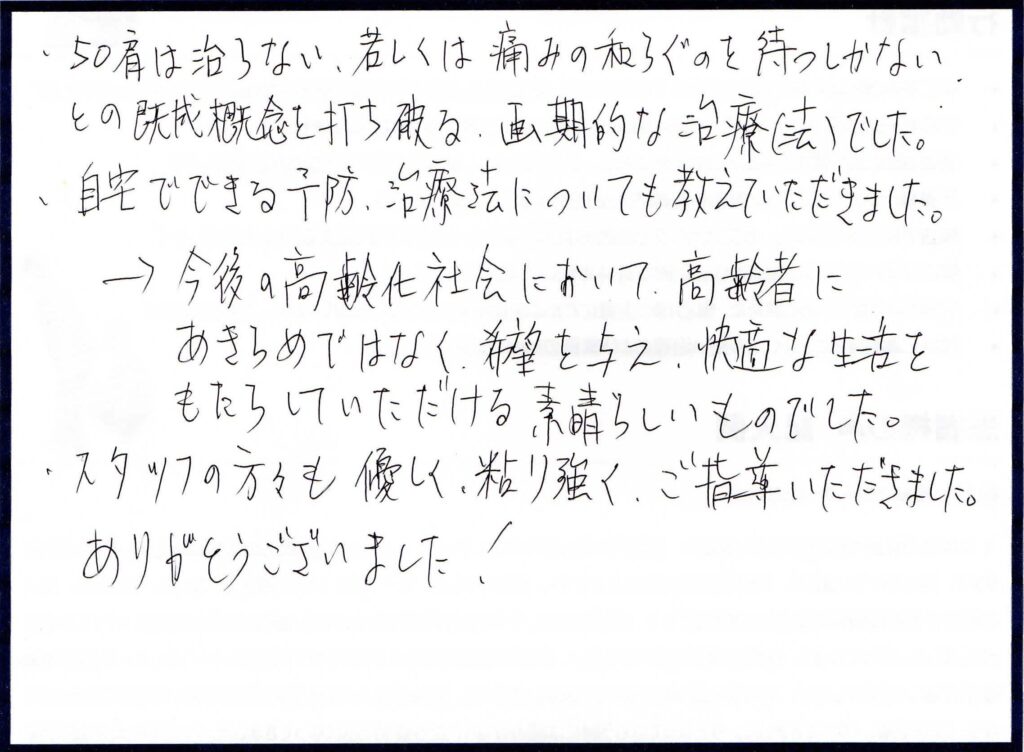 ・50肩は治らない、若しくは痛みの和らぐのを待つしかない、
との既成概念を打ち破る、画期的な治療(法)でした。
、自宅でできる予防、治療法についても教えていただきました。
→今後の高齢化社会において、高齢者に
あきらめではなく、希望を与え、快適な生活を
もたらしていただける素晴らしいものでした。
・スタッフの方々も優しく、粘り強く、ご指導いただきました。
ありがとうございました!